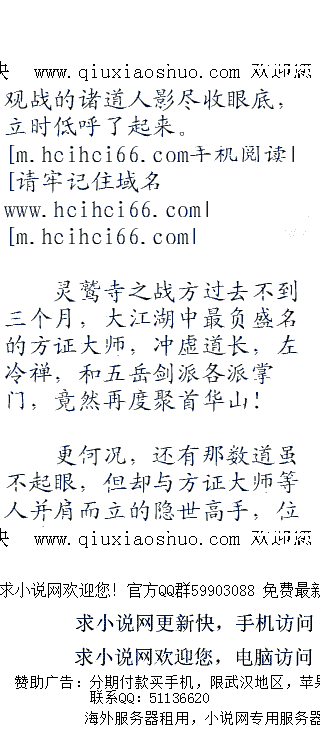 快 www.qiuxiaoshuo.com 欢迎您
观战的诸道人影尽收眼底，
立时低呼了起来。
[m.hcihci66.com手机阅读|
[请牢记住域名
www.hcihci66.com|
[m.hcihci66.com|
灵鹫寺之战方过去不到
三个月，大江湖中最负盛名
的方证大师，冲虚道长，左
冷禅，和五岳剑派各派掌
门，竟然再度聚首华山！
更何况，还有那数道虽
不起眼，但却与方证大师等
人并肩而立的隐世高手，位
快 www.qiuxiaoshuo.com 欢迎您
求小说网欢迎您! 官方QQ群59903088 免费最新
求小说网更新快，手机访问
求小说网欢迎您，电脑访问
赞助广告：分期付款买手机，限武汉地区，苹果
联系QQ：51136620
海外服务器租用，小说网专用服务器